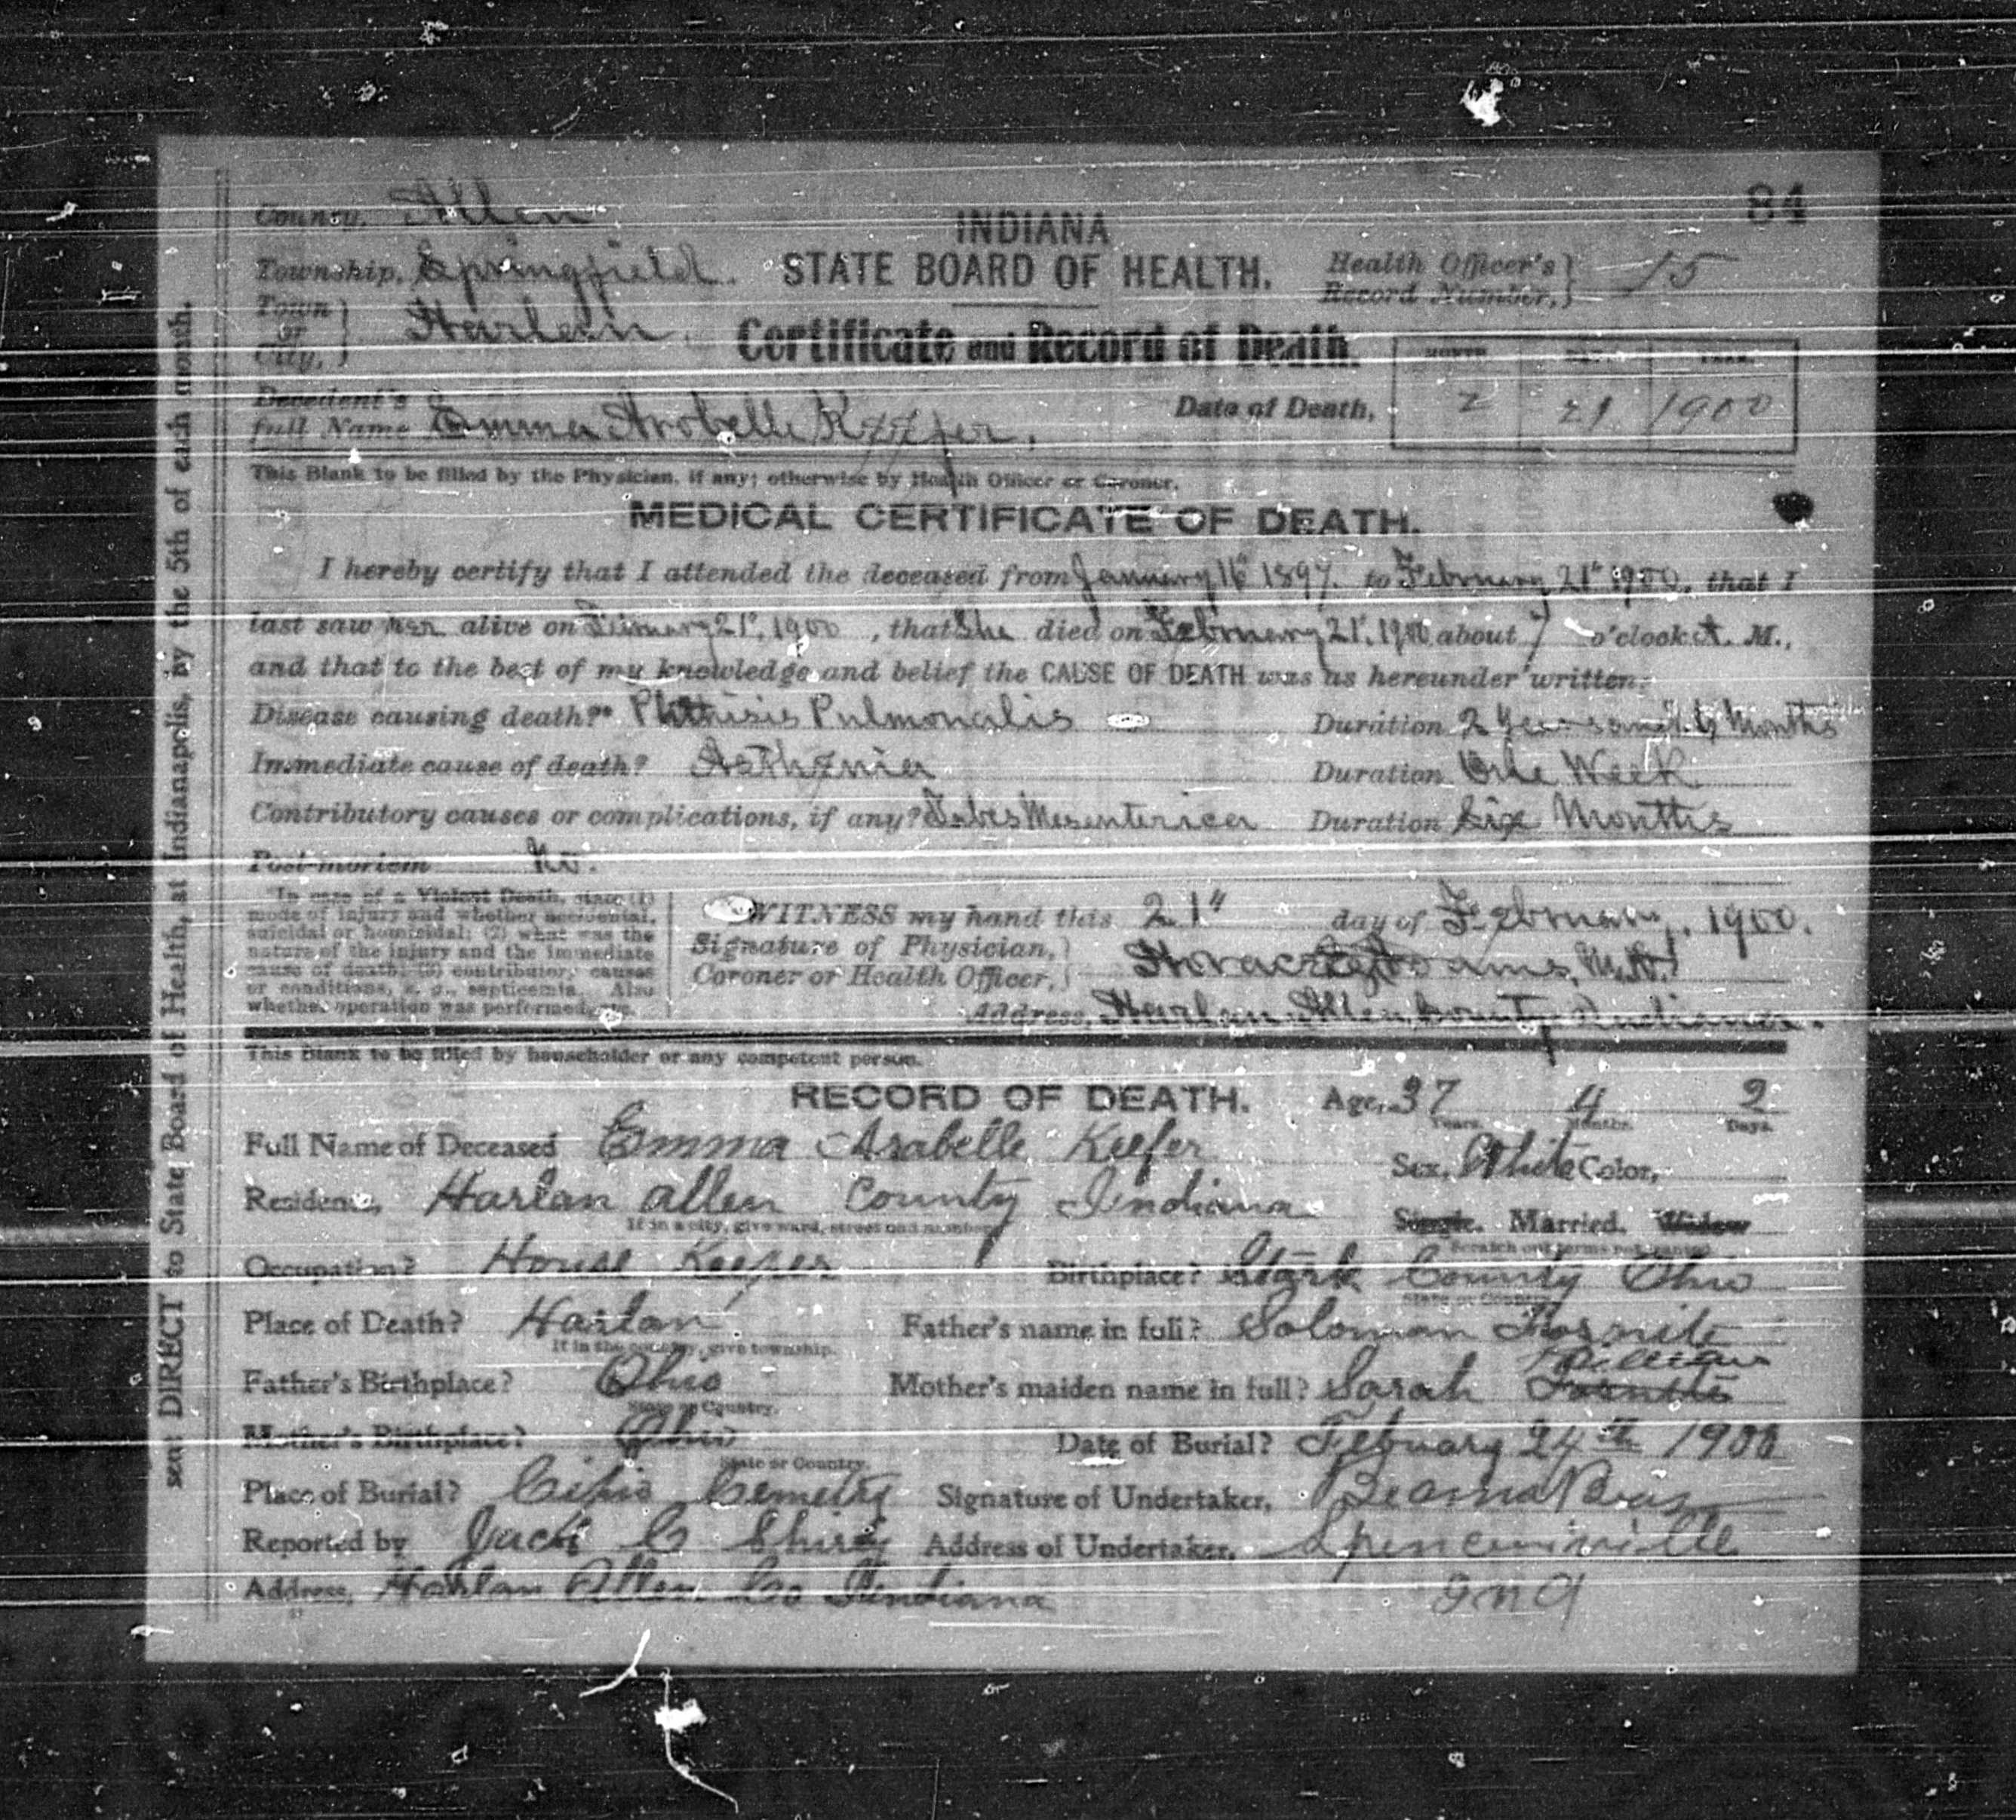 84
County, Allen
INDIANA
Township, Springfield.
STATE BOARD OF HEALTH.
Health Officer's Record Number, 15
Town or City, Harlan.
Certificate and Record of Death.
MONTH DAY YEAR
Decedent's full Name Emma Arobelle Keefer.
Date of Death, 2 21 1900
This Blank to be filled by the Physician, if any; otherwise by Health Officer or Coroner.
MEDICAL CERTIFICATE OF DEATH.
I hereby certify that I attended the deceased from January 16" 1897. to February 21" 1900, that I
last saw her alive on 21", 1900, that She died on February 21", 1900, about 7 o'clock A. M.,
and that to the best of my knowledge and belief the CAUSE OF DEATH was as hereunder written.
Disease causing death?* Phthisis Pulmonalis Duration 2 Years and 6 Months
Immediate cause of death? Asthenia Duration One Week
Contributory causes or complications, if any? Tabes Mesenterica Duration Six Months
Post-mortem No.
*In case of a Violent Death, state (1)
mode of injury and whether accidental,
suicidal or homicidal; (2) what was the
nature of the injury and the immediate
cause of death; (3) contributory causes
or conditions, e. g., septicemia. Also
whether operation was performed, etc.
WITNESS my hand this 21" day of February, 1900.
Signature of Physician, Coroner or Health Officer, Horace Adams, M.D.
Address, Harlan, Allen County Indiana.
This Blank to be filled by householder or any competent person.
RECORD OF DEATH. Age, 37 Years. 4 Months. 2 Days.
Full Name of Deceased Emma Arabelle Keefer
Sex, White Color,
Residence, Harlan Allen County Indiana
If in a city, give ward, street and number
Single. Married. Widow
Scratch out terms not wanted.
Occupation? House Keeper Birthplace? Stark County Ohio
State or Country.
Place of Death? Harlan Father's name in full? Soloman
If in the country, give township.
Father's Birthplace? Ohio Mother's maiden name in full? Sarah
State or Country.
Mother's Birthplace? Ohio Date of Burial? Febuary 24th 1900
State or Country.
Place of Burial? Cemetry Signature of Undertaker,
Reported by Jack C Address of Undertaker, Spencerville
Address, Harlan Allen Co Indiana Ind
sent DIRECT to State Board of Health, at Indianapolis, by the 5th of each month.